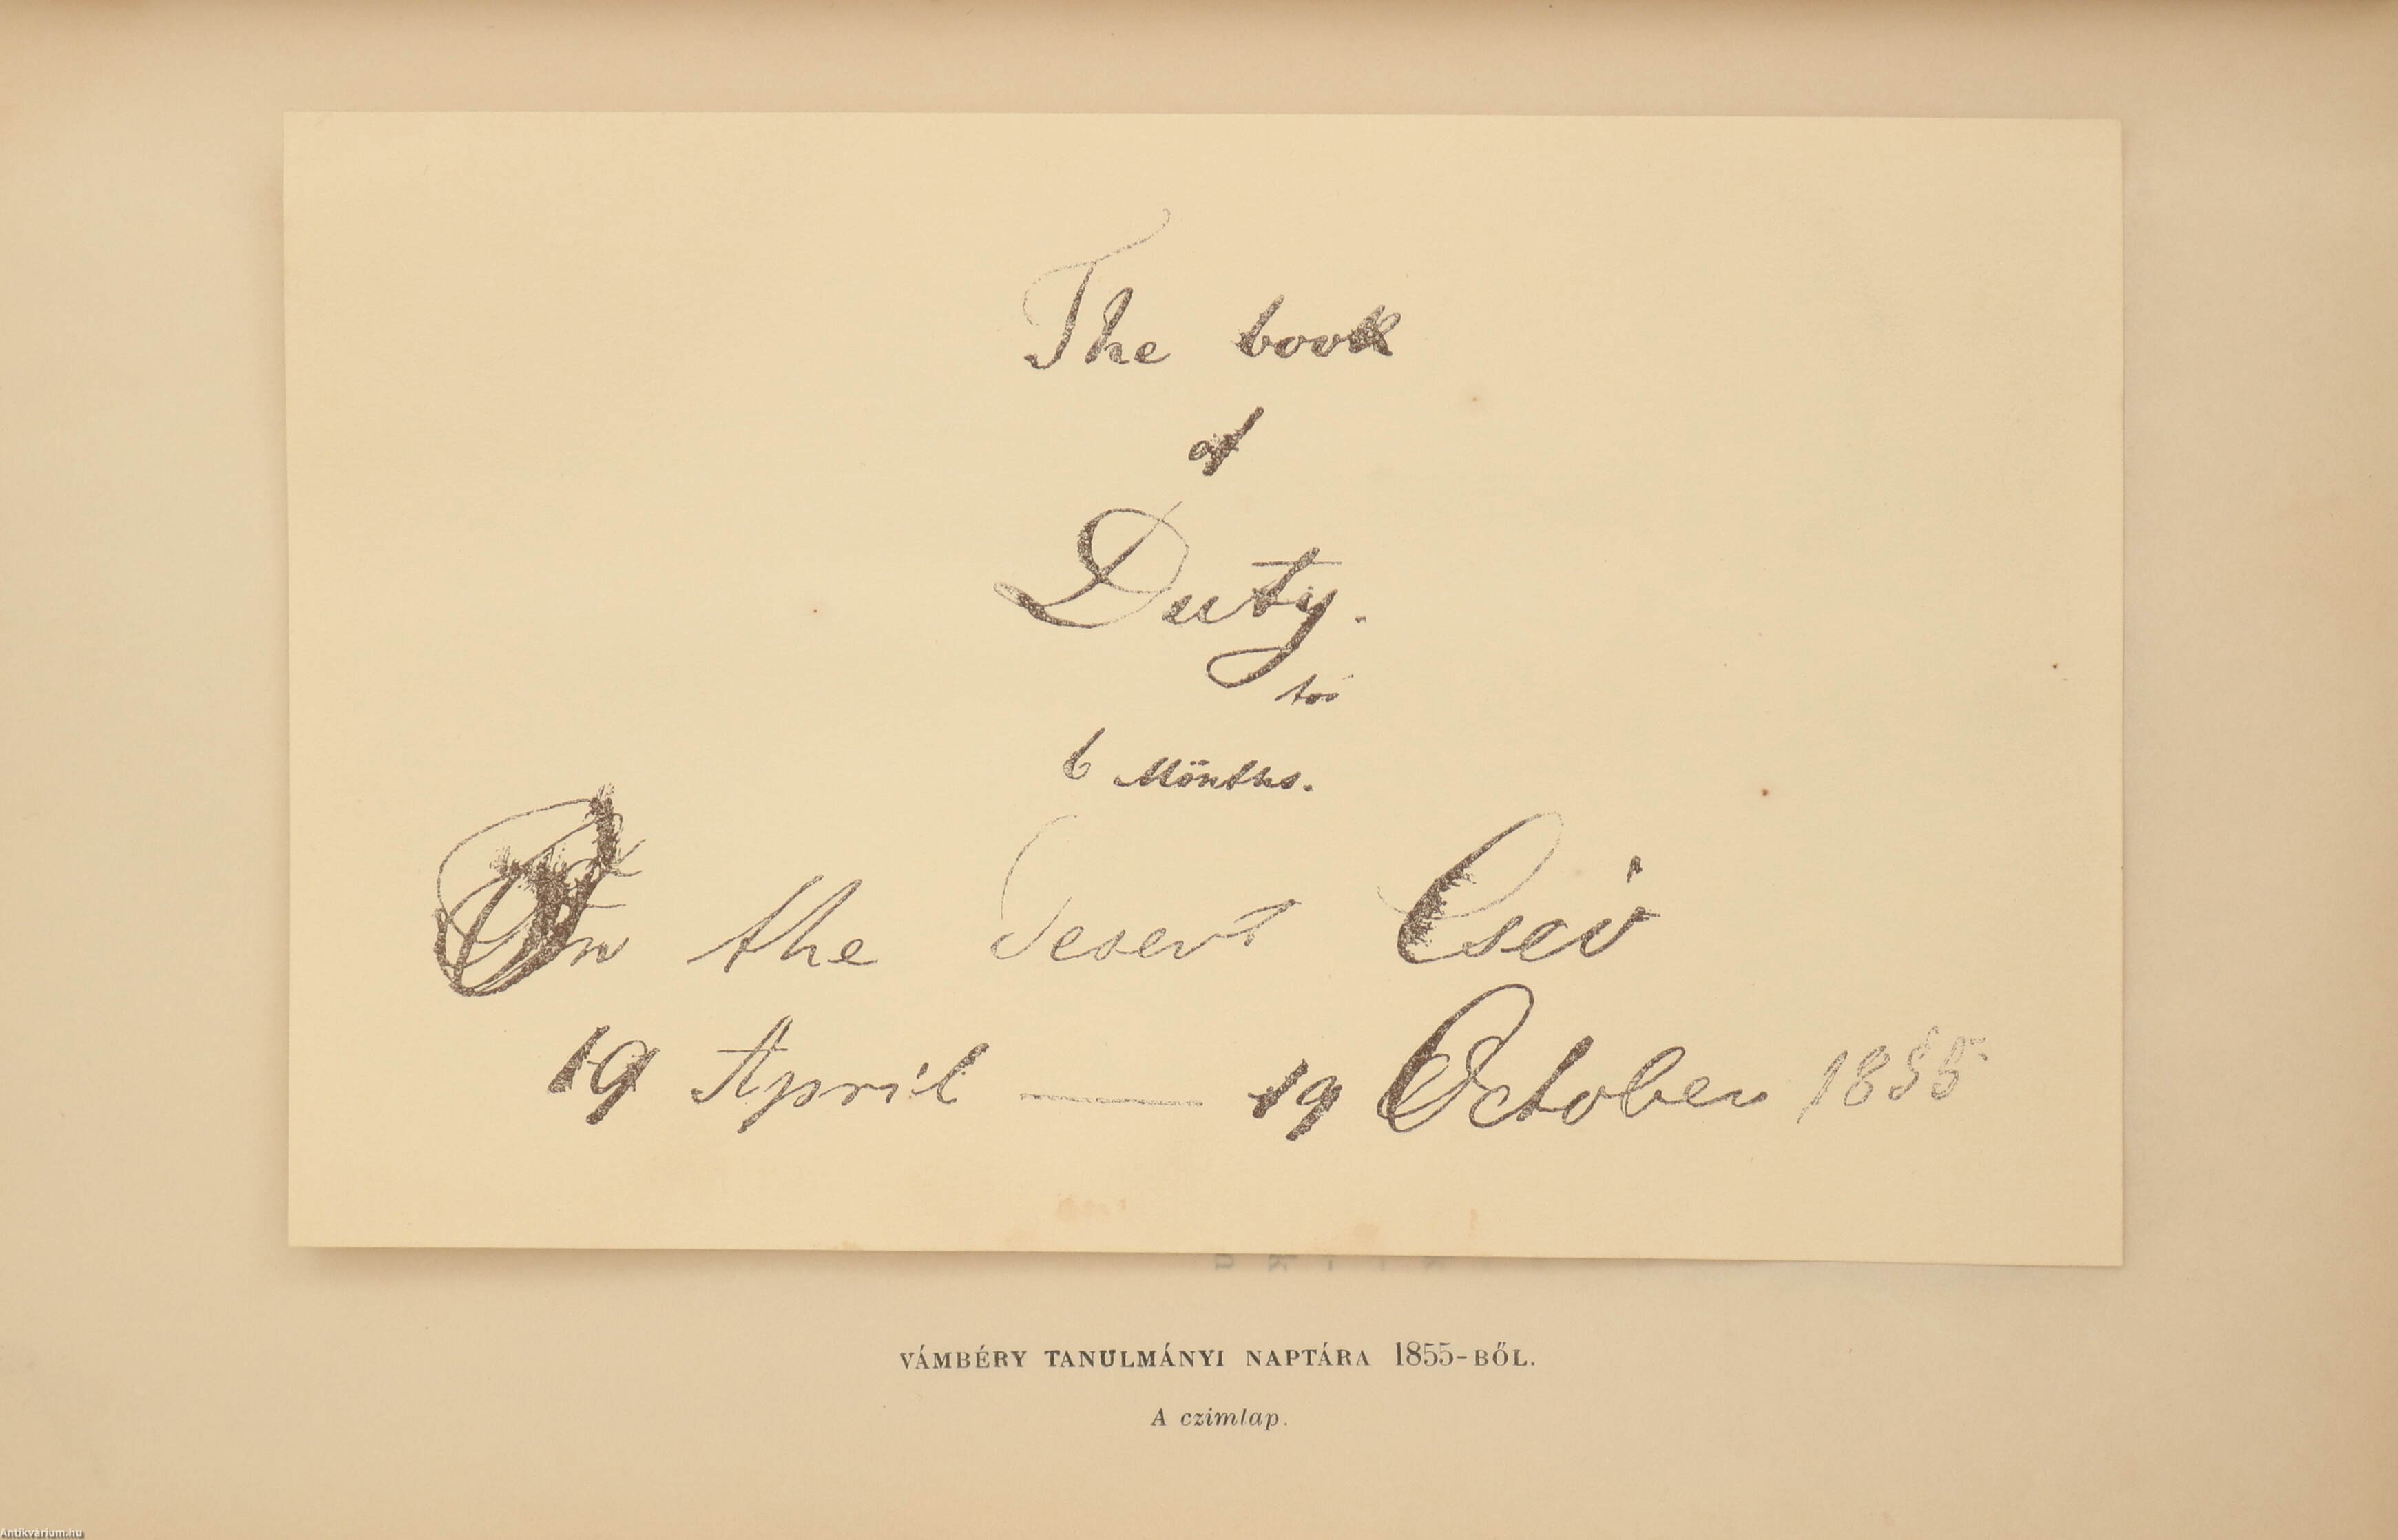 The book
of
Duty.
for
6 Mönths.
In the Desert Csév
19 April — 19 October 1855
VÁMBÉRY TANULMÁNYI NAPTÁRA 1855-BŐL.
A czimlap.
Antikvárium.hu